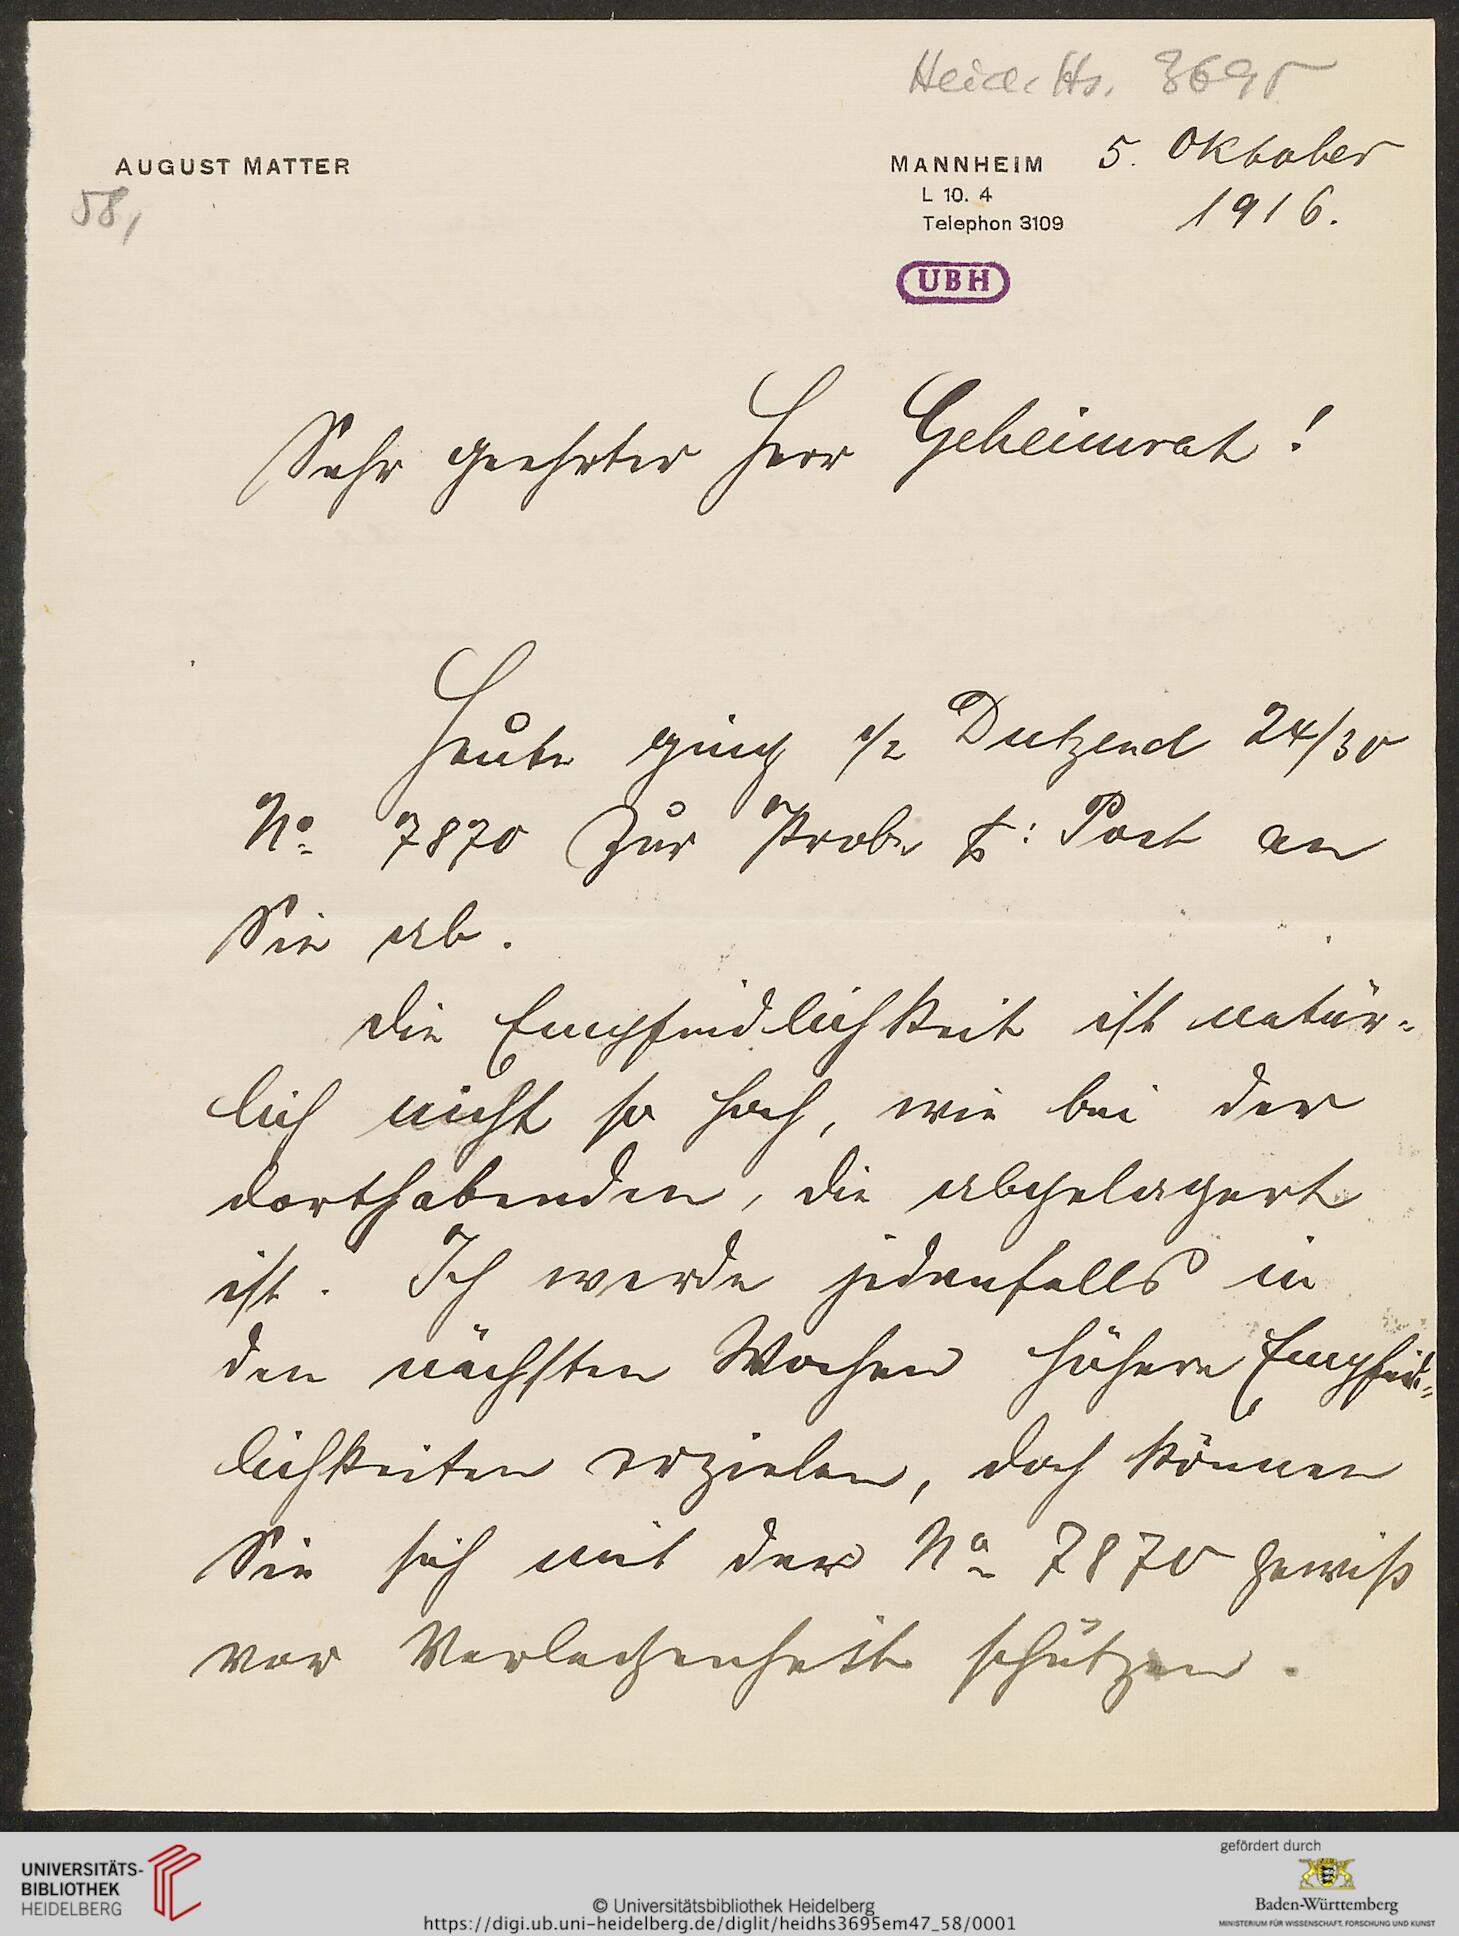 Heid. Hs. 3695
AUGUST MATTER
58,
MANNHEIM 5. Oktober
L 10. 4
Telephon 3109
1916.
UBH
Sehr geehrter Herr Geheimrat!
Heute ging 1/2 Dutzend 24/30
No 7870 zur Probe p: Post an
Sie ab.
Die Empfindlichkeit ist natür-
lich nicht so hoch, wie bei der
dorthabenden, die abgelagert
ist. Ich werde jedenfalls in
den nächsten Wochen höhere Empfind-
lichkeiten erzielen, doch können
Sie sich mit der No 7870 gewiß
vor Verlegenheit schützen.
UNIVERSITÄTS-
BIBLIOTHEK
HEIDELBERG
© Universitätsbibliothek Heidelberg
https://digi.ub.uni-heidelberg.de/diglit/heidhs3695em47_58/0001
gefördert durch
Baden-Württemberg
MINISTERIUM FÜR WISSENSCHAFT, FORSCHUNG UND KUNST